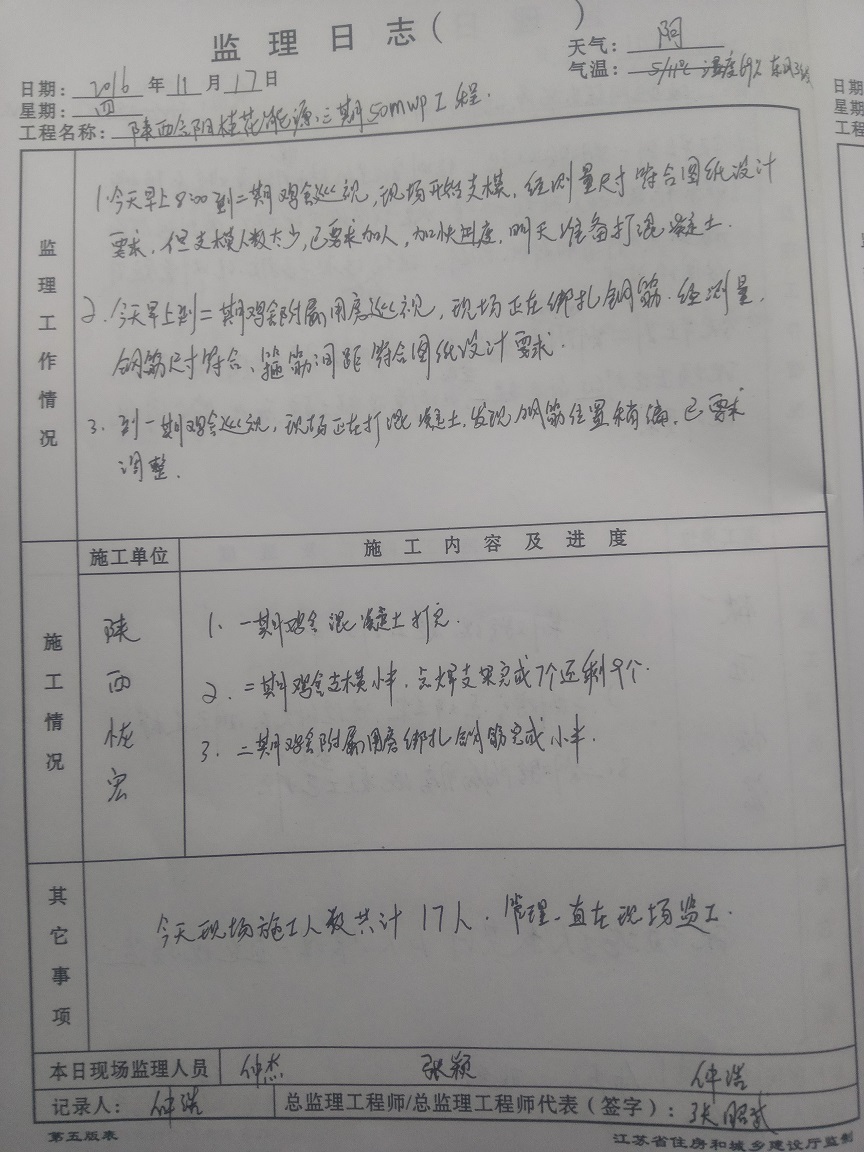 监理日志( )
日期: 2016 年 11 月 17 日
天气: 阴
星期: 四
气温: 5/11℃ 湿度69% 东风3级
工程名称: 陕西合阳桂花能源二期50mwp工程.
监理工作情况
1.今天早上8:00到二期鸡舍巡视,现场开始支模,经测量尺寸符合图纸设计
要求,但支模人数太少,已要求加人,加快进度,明天准备打混凝土.
2.今天早上到二期鸡舍附属用房巡视,现场正在绑扎钢筋.经测量,
钢筋尺寸符合、箍筋间距符合图纸设计要求.
3.到一期鸡舍巡视,现场正在打混凝土,发现钢筋位置稍偏,已要求
调整.
施工情况
施工单位
施工内容及进度
陕西恢宏
1、一期鸡舍混凝土打完.
2.二期鸡舍支模小半,点焊支架完成7个还剩9个.
3.二期鸡舍附属用房绑扎钢筋完成小半.
其它事项
今天现场施工人数共计17人.管理一直在现场监工.
本日现场监理人员 仲杰 张颖 仲浩
记录人: 仲浩 总监理工程师/总监理工程师代表(签字): 张昭武
第五版表
江苏省住房和城乡建设厅监制
日期
星期
工程